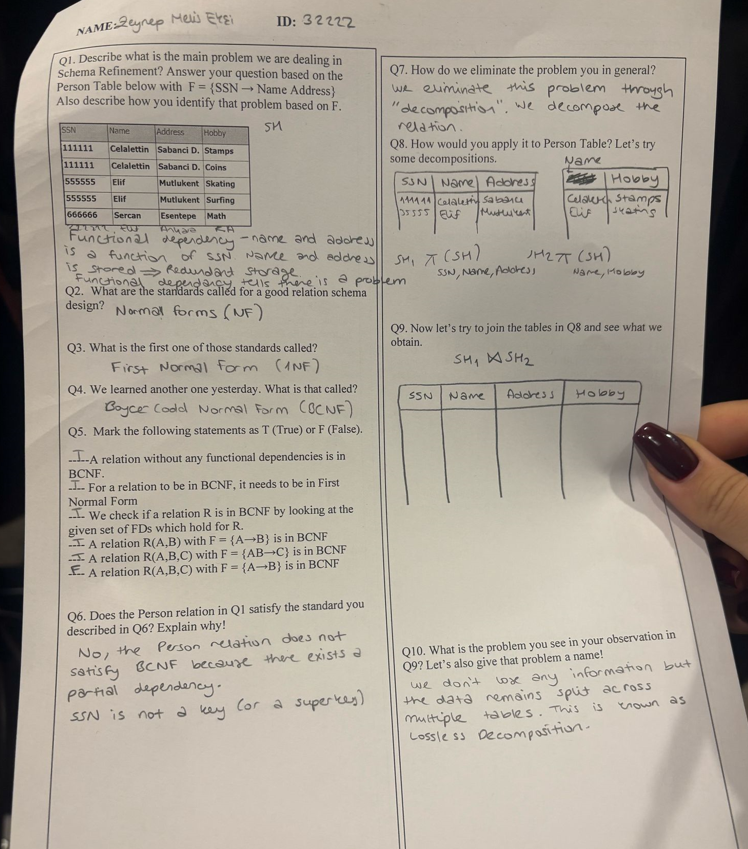 NAME: Zeynep Melis Ekşi ID: 32222
Q1. Describe what is the main problem we are dealing in
Schema Refinement? Answer your question based on the
Person Table below with F = {SSN → Name Address}
Also describe how you identify that problem based on F.
SH
SSN Name Address Hobby
111111 Celalettin Sabanci D. Stamps
111111 Celalettin Sabanci D. Coins
555555 Elif Mutlukent Skating
555555 Elif Mutlukent Surfing
666666 Sercan Esentepe Math
Functional dependency - name and address
is a function of SSN Name and address
is stored ⇒ Redundant storage
Functional dependancy tells there is a problem
Q2. What are the standards called for a good relation schema
design? Normal forms (NF)
Q3. What is the first one of those standards called?
First Normal Form (1NF)
Q4. We learned another one yesterday. What is that called?
Boyce Codd Normal Form (BCNF)
Q5. Mark the following statements as T (True) or F (False).
T A relation without any functional dependencies is in
BCNF.
T For a relation to be in BCNF, it needs to be in First
Normal Form
T We check if a relation R is in BCNF by looking at the
given set of FDs which hold for R.
T A relation R(A,B) with F = {A→B} is in BCNF
T A relation R(A,B,C) with F = {AB→C} is in BCNF
F A relation R(A,B,C) with F = {A→B} is in BCNF
Q6. Does the Person relation in Q1 satisfy the standard you
described in Q6? Explain why!
No, the Person relation does not
satisfy BCNF because there exists a
partial dependency.
SSN is not a key (or a superkey)
Q7. How do we eliminate the problem you in general?
We eliminate this problem through
"decomposition". We decompose the
relation.
Q8. How would you apply it to Person Table? Let's try
some decompositions.
SSN Name Address
111111 Celalettin Sabancı
55555 Elif Mutlukent
Name Hobby
Celalettin Stamps
Elif Skating
SH₁ π (SH) SH2 π (SH)
SSN, Name, Address Name, Hobby
Q9. Now let's try to join the tables in Q8 and see what we
obtain.
SH₁ ⋈ SH₂
SSN Name Address Hobby
Q10. What is the problem you see in your observation in
Q9? Let's also give that problem a name!
We don't lose any information but
the data remains split across
multiple tables. This is known as
Lossless Decomposition.